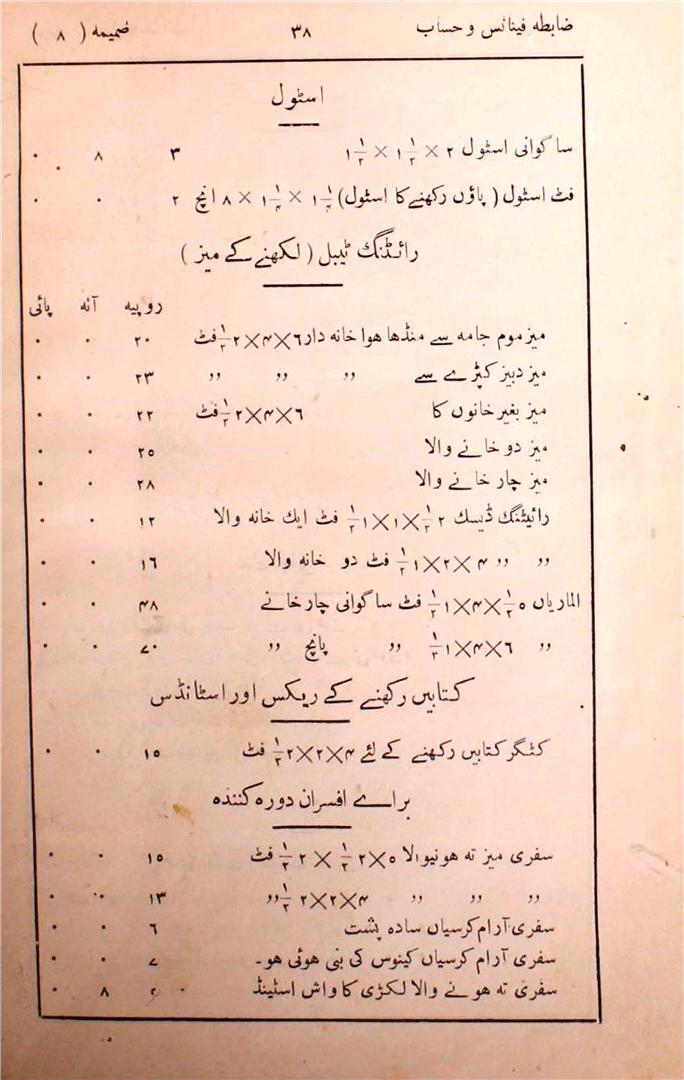 ضابطہ فینانس و حساب ۳۸ ضمیمہ ( ۸ )
اسٹول
ساگوانی اسٹول ۲ × ۱ ۱/۲ × ۱ ۱/۲ ۳ ۸ ۰
فٹ اسٹول ( پاؤں رکھنے کا اسٹول) ۱ ۱/۲ × ۱ ۱/۲ × ۸ انچ ۲ ۰ ۰
رائٹنگ ٹیبل ( لکھنے کے میز )
روپیہ آنہ پائی
میز موم جامہ سے منڈھا ہوا خانہ دار ۶×۴×۲ ۱/۲ فٹ ۲۰ ۰ ۰
میز دبیز کپڑے سے ,, ,, ,, ۲۳ ۰ ۰
میز بغیر خانوں کا ۶×۴×۲ ۱/۲ فٹ ۲۲ ۰ ۰
میز دو خانے والا ۲۵ ۰ ۰
میز چار خانے والا ۲۸ ۰ ۰
رائیٹنگ ڈیسک ۲ ۱/۲×۱×۱ ۱/۲ فٹ ایک خانہ والا ۱۲ ۰ ۰
,, ,, ۴×۲×۱ ۱/۲ فٹ دو خانہ والا ۱۶ ۰ ۰
الماریاں ۵ ۱/۲×۴×۱ ۱/۲ فٹ ساگوانی چار خانے ۴۸ ۰ ۰
,, ۶×۴×۱ ۱/۲ ,, پانچ ,, ۷۰ ۰ ۰
کتابیں رکھنے کے ریکس اور اسٹانڈس
کٹگر کتابیں رکھنے کے لئے ۴×۲×۲ ۱/۲ فٹ ۱۵ ۰ ۰
براے افسران دورہ کنندہ
سفری میز تہ ہونیوالا ۵×۲ ۱/۲ × ۲ ۱/۲ فٹ ۱۵ ۰ ۰
,, ,, ,, ۴×۲×۲ ۱/۲ ,, ۱۳ ۰ ۰
سفری آرام کرسیاں سادہ پشت ۶ ۰ ۰
سفری آرام کرسیاں کینوس کی بنی ہوئی ہو۔ ۷ ۰ ۰
سفری تہ ہونے والا لکڑی کا واش اسٹینڈ ۸ ۰